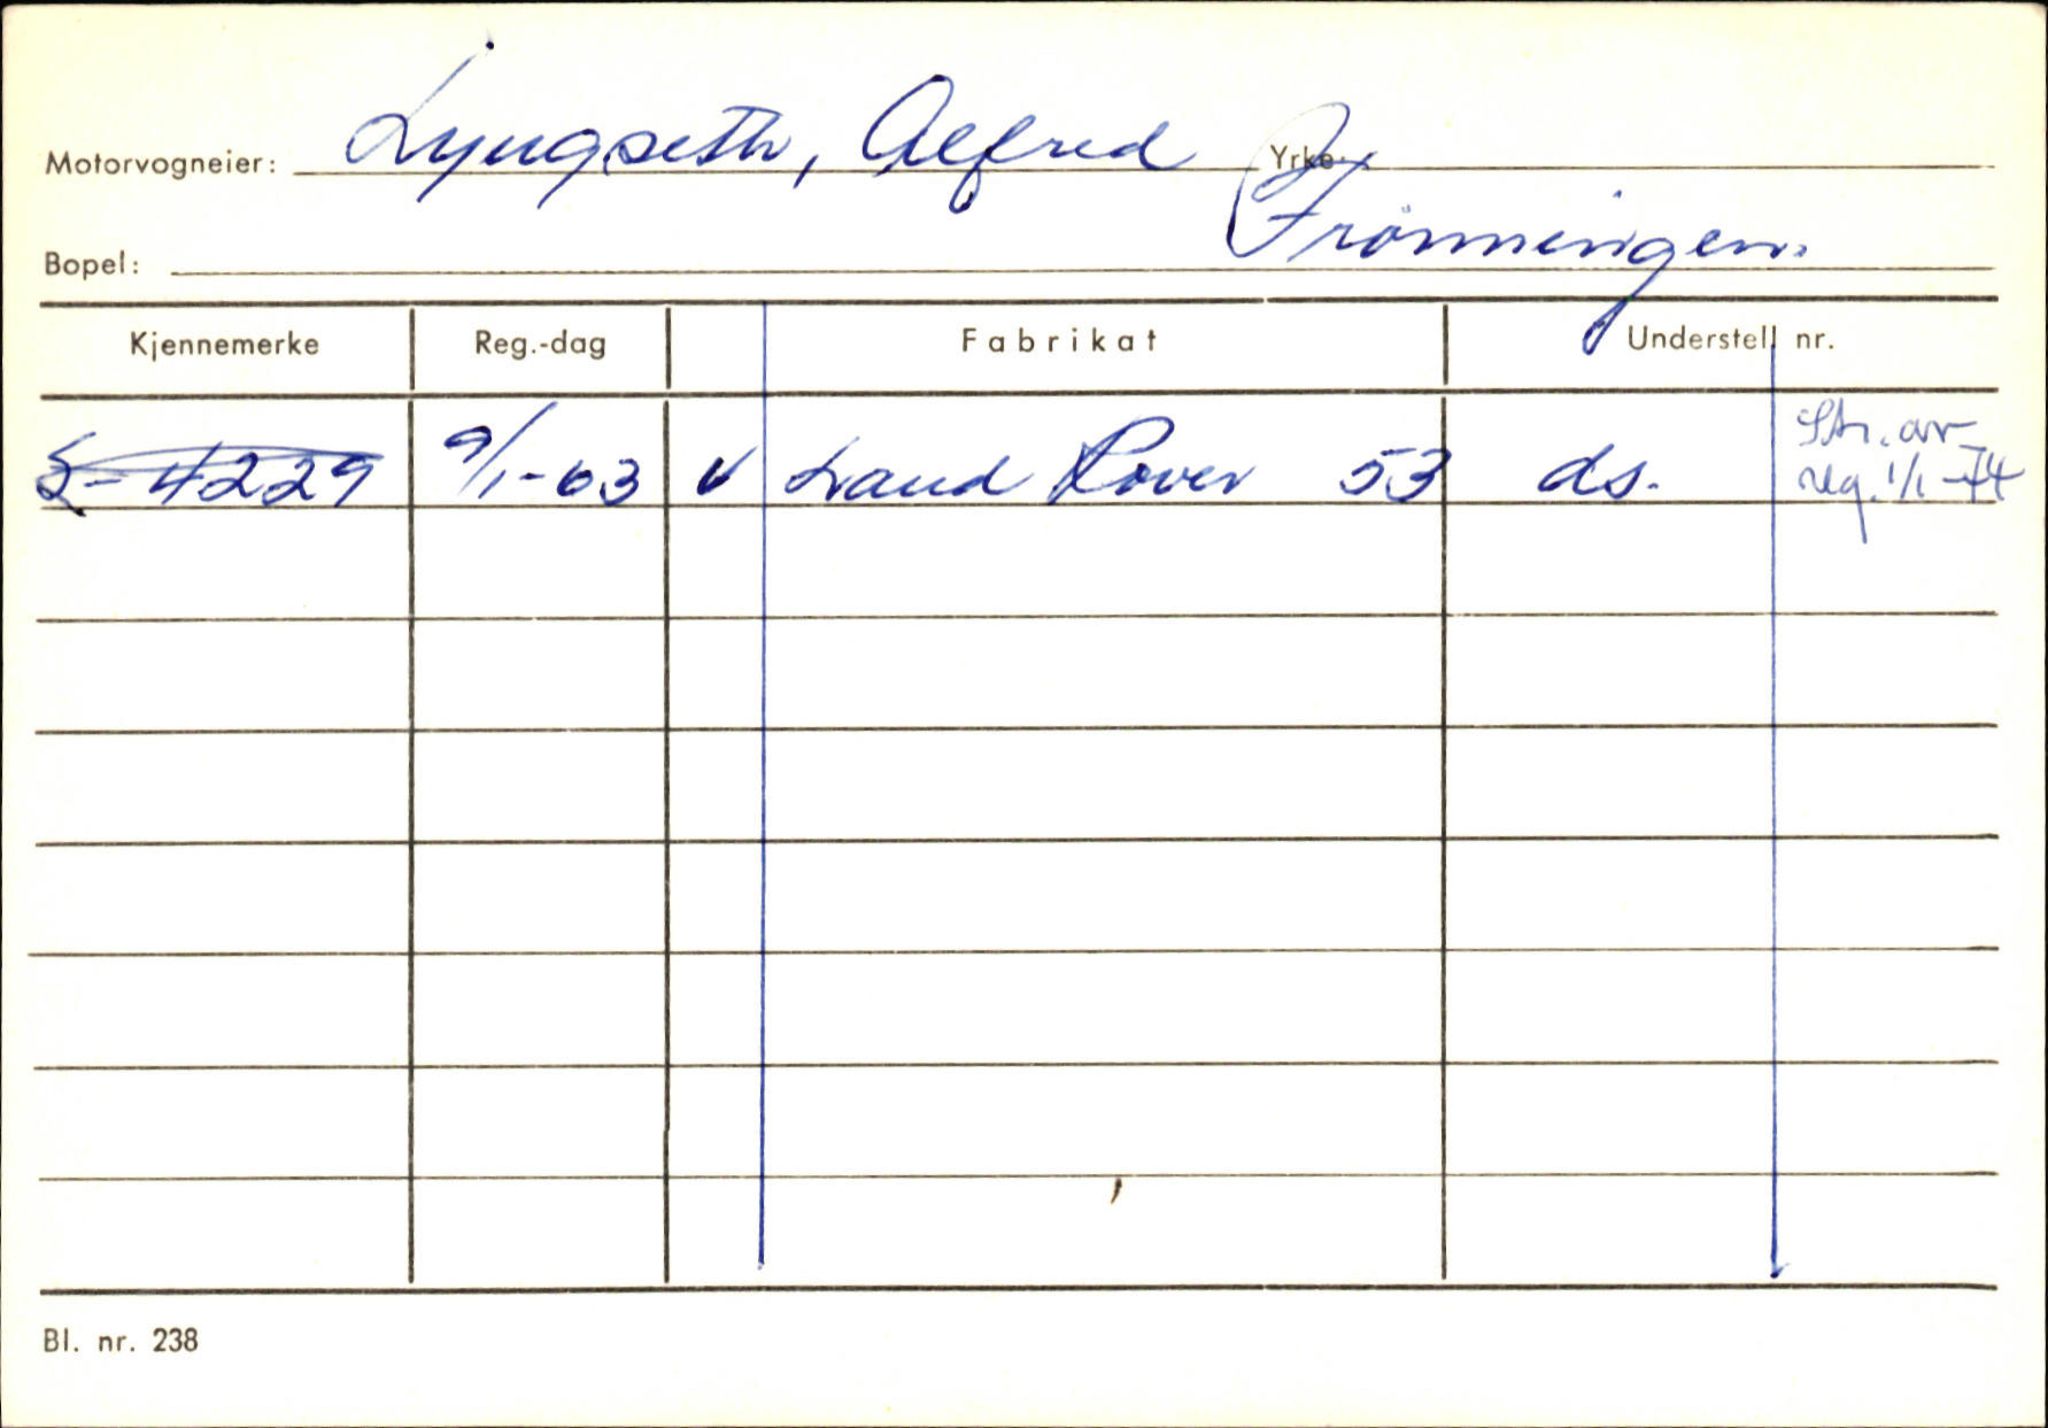 Motorvogneier: Lyngseth, Alfred Yrke:
Bopel: Frønningen.
Kjennemerke Reg.-dag Fabrikat Understell nr.
S-4229 9/1-63 v Land Rover 53 ds. Str. av
reg. 1/1-74
Bl. nr. 238